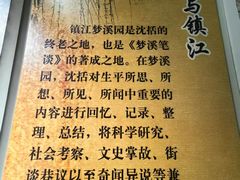 与镇江
镇江梦溪园是沈括的
终老之地，也是《梦溪笔
谈》的著成之地。在梦溪
园，沈括对生平所思、所
想、所见、所闻中重要的
内容进行回忆、记录、整
理、总结，将科学研究、
社会考察、文史掌故、街
谈巷议以至奇闻异说等兼